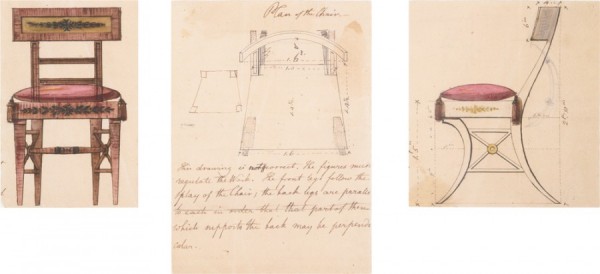 Plan of the Chair
1.6
1.6
this drawing is not correct, the figures must
regulate the Work. The front legs follow the
splay of the Chair; the back legs are parallel
to each in order that that part of them
which supports the back may be perpendi
cular.